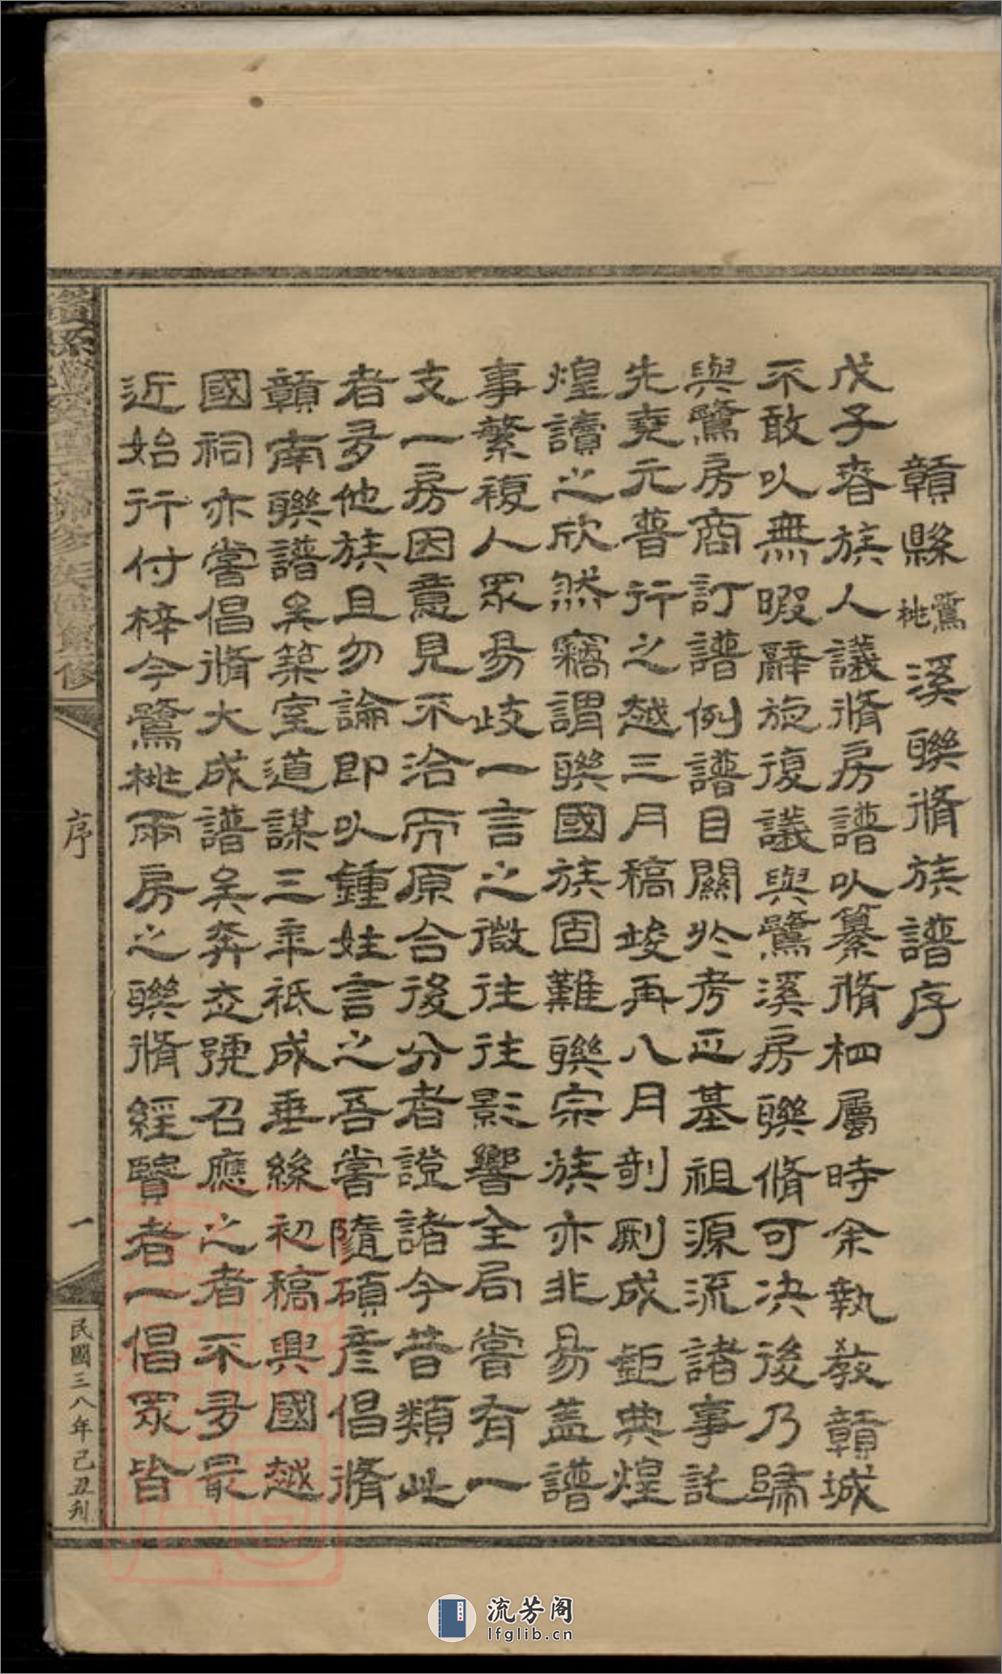 贛縣鷺桃溪聯脩族譜序
戊子春族人議脩房譜以纂脩相屬時余執教贛城
不敢以無暇辭旋復議與鷺溪房聯脩可決後乃歸
與鷺房商訂譜例譜目關於考正基祖源流諸事託
先堯元普行之越三月稿竣再八月剞劂成鉅典煌
煌讀之欣然竊謂聯國族固難聯宗族亦非易蓋譜
事繁複人眾易歧一言之微往往影響全局嘗有一
支一房因意見不洽而原合後分者證諸今昔類此
者多他族且勿論即以鍾姓言之吾嘗隨碩彥倡脩
贛南聯譜矣築室道謀三年祗成垂絲初稿興國越
國祠亦嘗倡脩大成譜矣奔走號召應之者不多最
近始行付梓今鷺桃兩房之聯脩經賢者一倡眾皆
序
一
民國三八年己丑刊
流芳阁
lfglib.cn